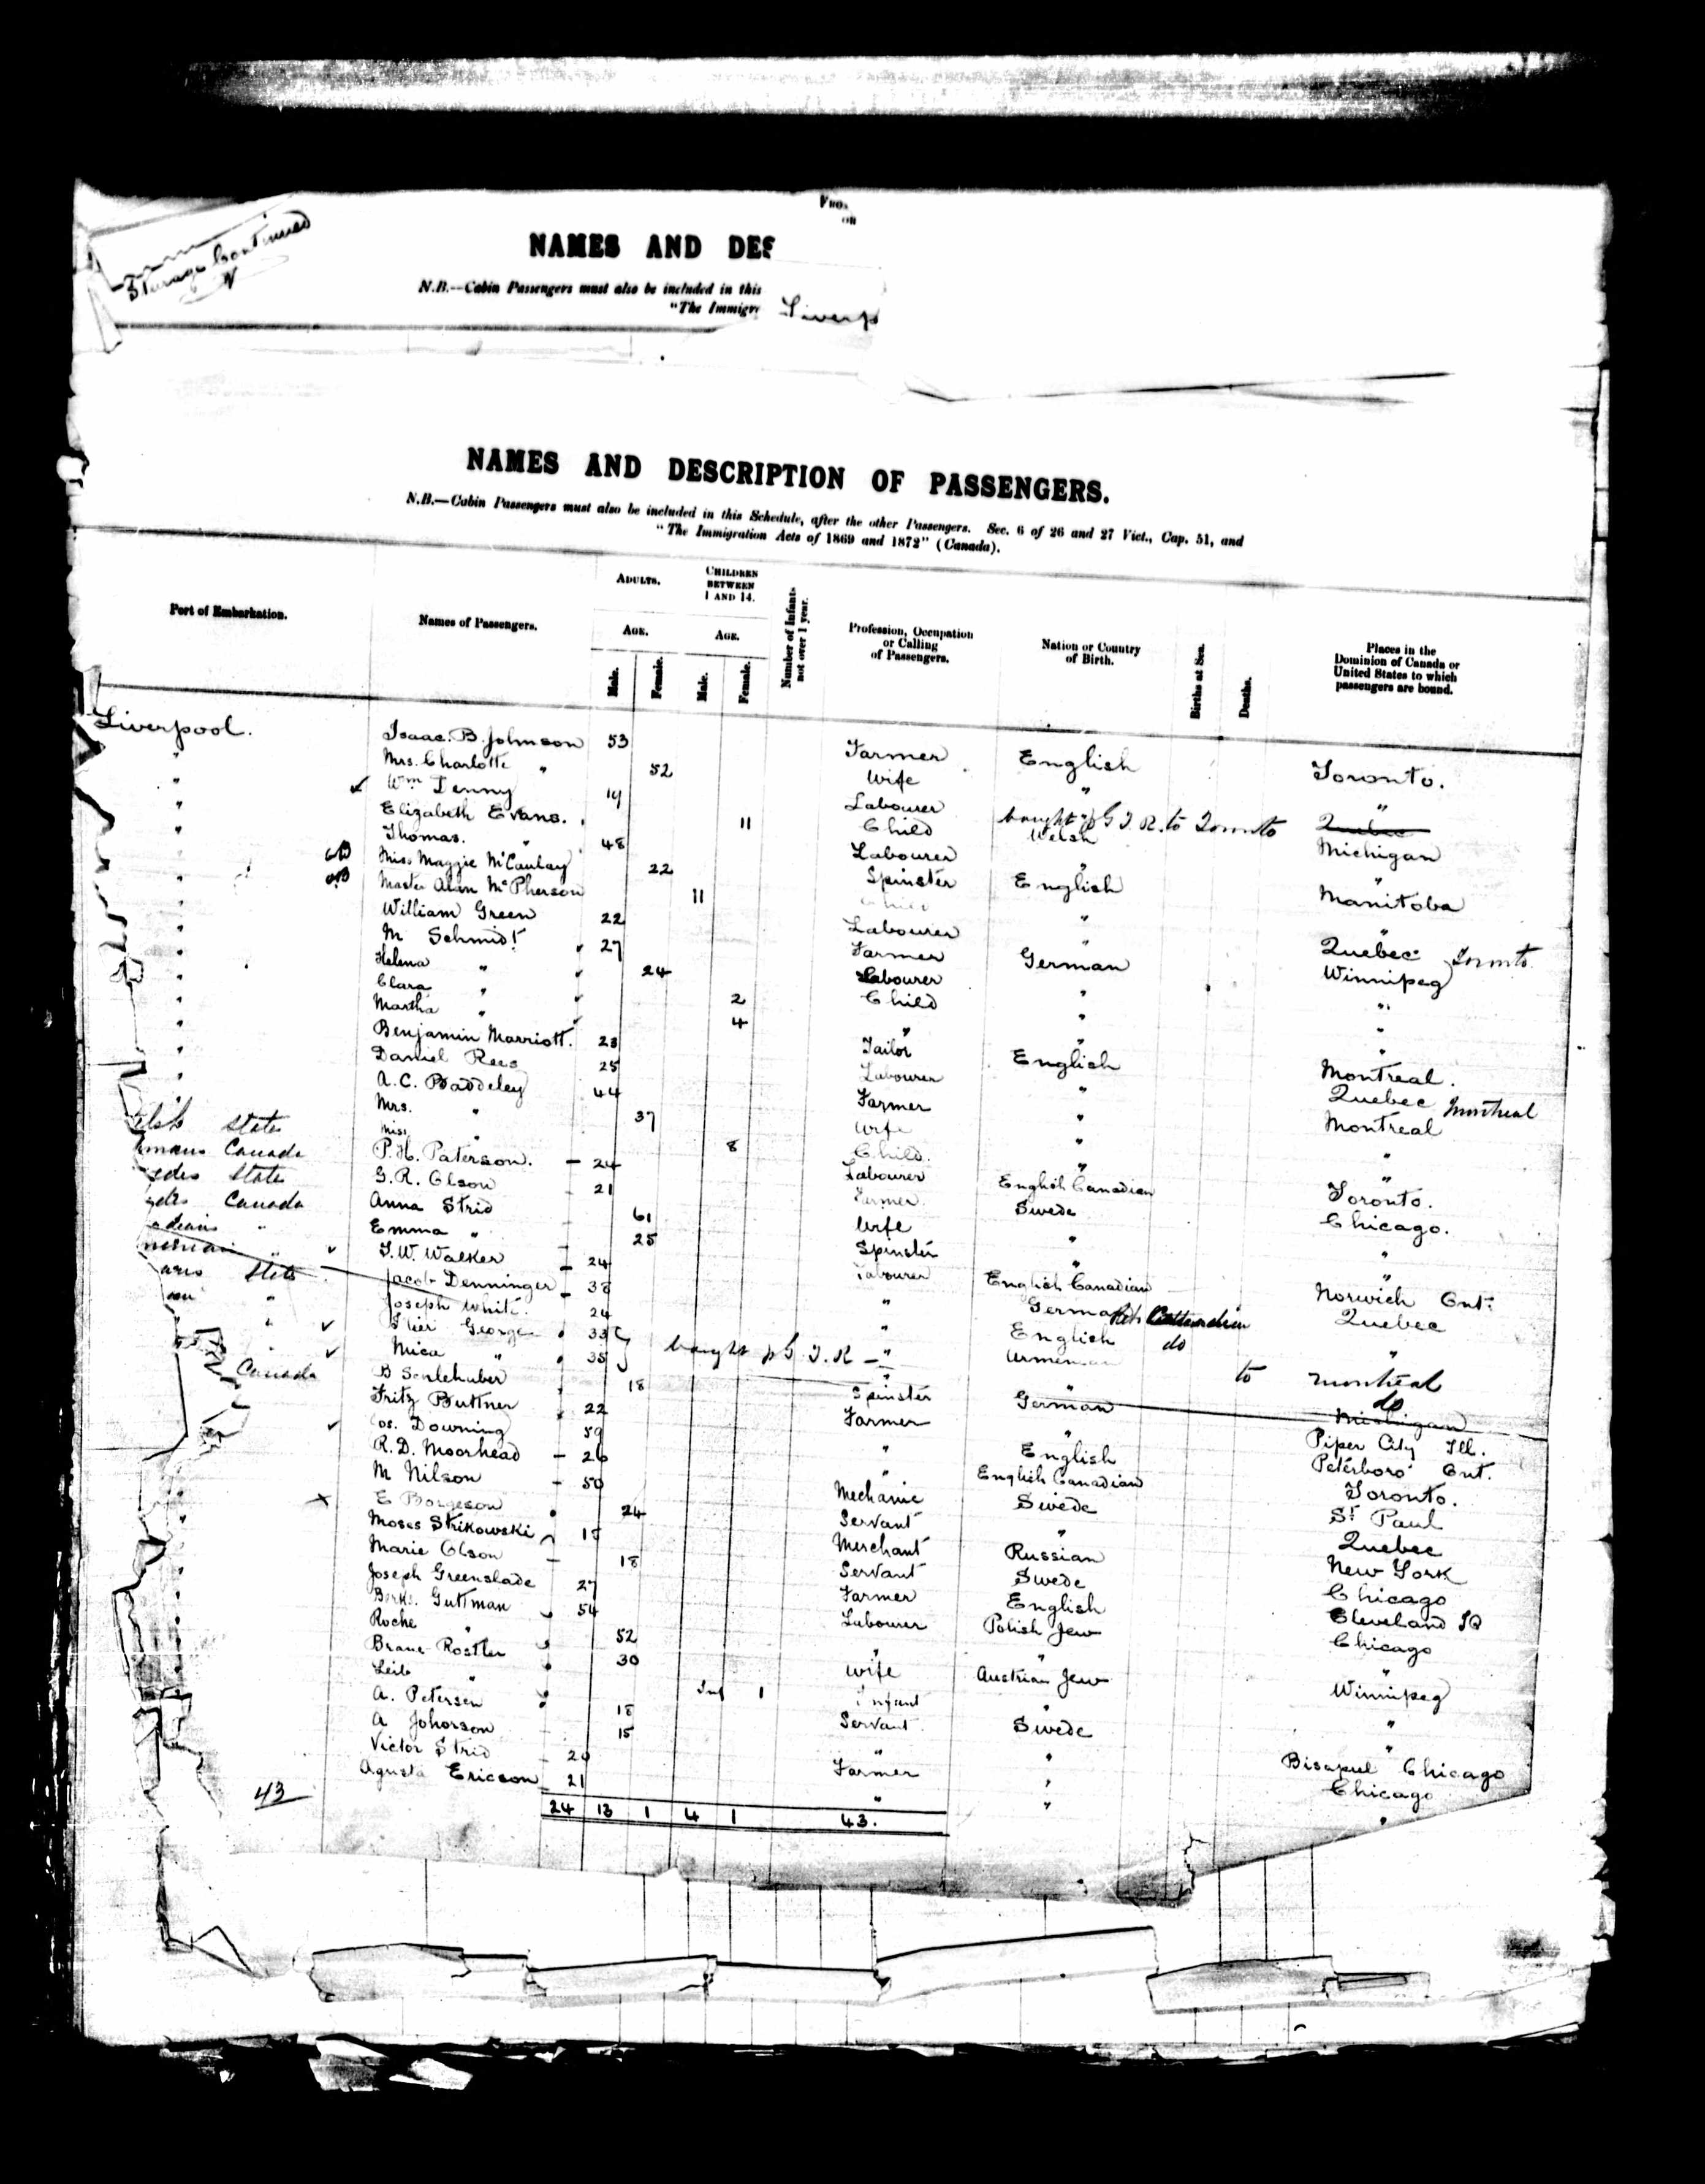 Steerage Continued
NAMES AND DES
N.B.—Cabin Passengers must also be included in this
"The Immigr
Liverp
NAMES AND DESCRIPTION OF PASSENGERS.
N.B.—Cabin Passengers must also be included in this Schedule, after the other Passengers. Sec. 6 of 26 and 27 Vict., Cap. 51, and
"The Immigration Acts of 1869 and 1872" (Canada).
Port of Embarkation. Names of Passengers. ADULTS. AGE. Male. Female. CHILDREN BETWEEN 1 AND 14. AGE. Male. Female. Number of Infants not over 1 year. Profession, Occupation or Calling of Passengers. Nation or Country of Birth. Births at Sea. Deaths. Places in the Dominion of Canada or United States to which passengers are bound.
Liverpool. Isaac. B. Johnson 53 Farmer English Toronto.
" Mrs. Charlotte " 52 Wife " "
" Wm Denny 19 Labourer bought p G T. R. to Toronto Quebec
" Elizabeth Evans. 11 Child Welsh Michigan
" Thomas. " 48 Labourer " "
" Miss Maggie McCaulay 22 Spinster English Manitoba
" Master Alan McPherson 11 Child " "
" William Green 22 Labourer " Quebec Toronto
" M Schmidt 27 Farmer German Winnipeg
" Helena " 24 Labourer " "
" Clara " 2 Child " "
" Martha " 4 " " "
" Benjamin Marriott. 23 Tailor English Montreal.
" Daniel Rees 25 Labourer " Quebec Montreal
" A. C. Baddeley 44 Farmer " Montreal
Mrs. " 37 Wife " "
States Miss " 8 Child. " "
Canada P. H. Paterson. 24 Labourer English Canadian Toronto.
States G. R. Olson 21 Farmer Swede Chicago.
Canada Anna Strid 61 Wife " "
" Emma " 25 Spinster " "
" J. W. Walker 24 Labourer English Canadian Norwich Ont.
States Jacob Denninger 38 " German Quebec
" Joseph White. 24 " English do "
" George 33 bought p G. T. R " Armenian to Montreal
" Mica " 35 " " do
Canada B 18 Spinster German Michigan
Fritz Buttner 22 Farmer " Piper City Ill.
Jos. Downing 59 " English Peterboro' Ont.
R. D. Moorhead 26 " English Canadian Toronto.
M Nilson 50 Mechanic Swede St Paul
E Borgeson 24 Servant " Quebec
Moses Strikowski 18 Merchant Russian New York
Marie Olson 18 Servant Swede Chicago
Joseph Greenslade 27 Farmer English Cleveland
Guttman 54 Labourer Polish Jew Chicago
Roche " 52 " " "
Brane Rostler 30 Wife Austrian Jew Winnipeg
Leib " Inf 1 Infant " "
A. Petersen 18 Servant Swede "
A Johorson 15 " " Chicago
Victor Strid 20 Farmer " Chicago
Agusta Ericson 21 " " "
43 24 13 1 4 1 43.